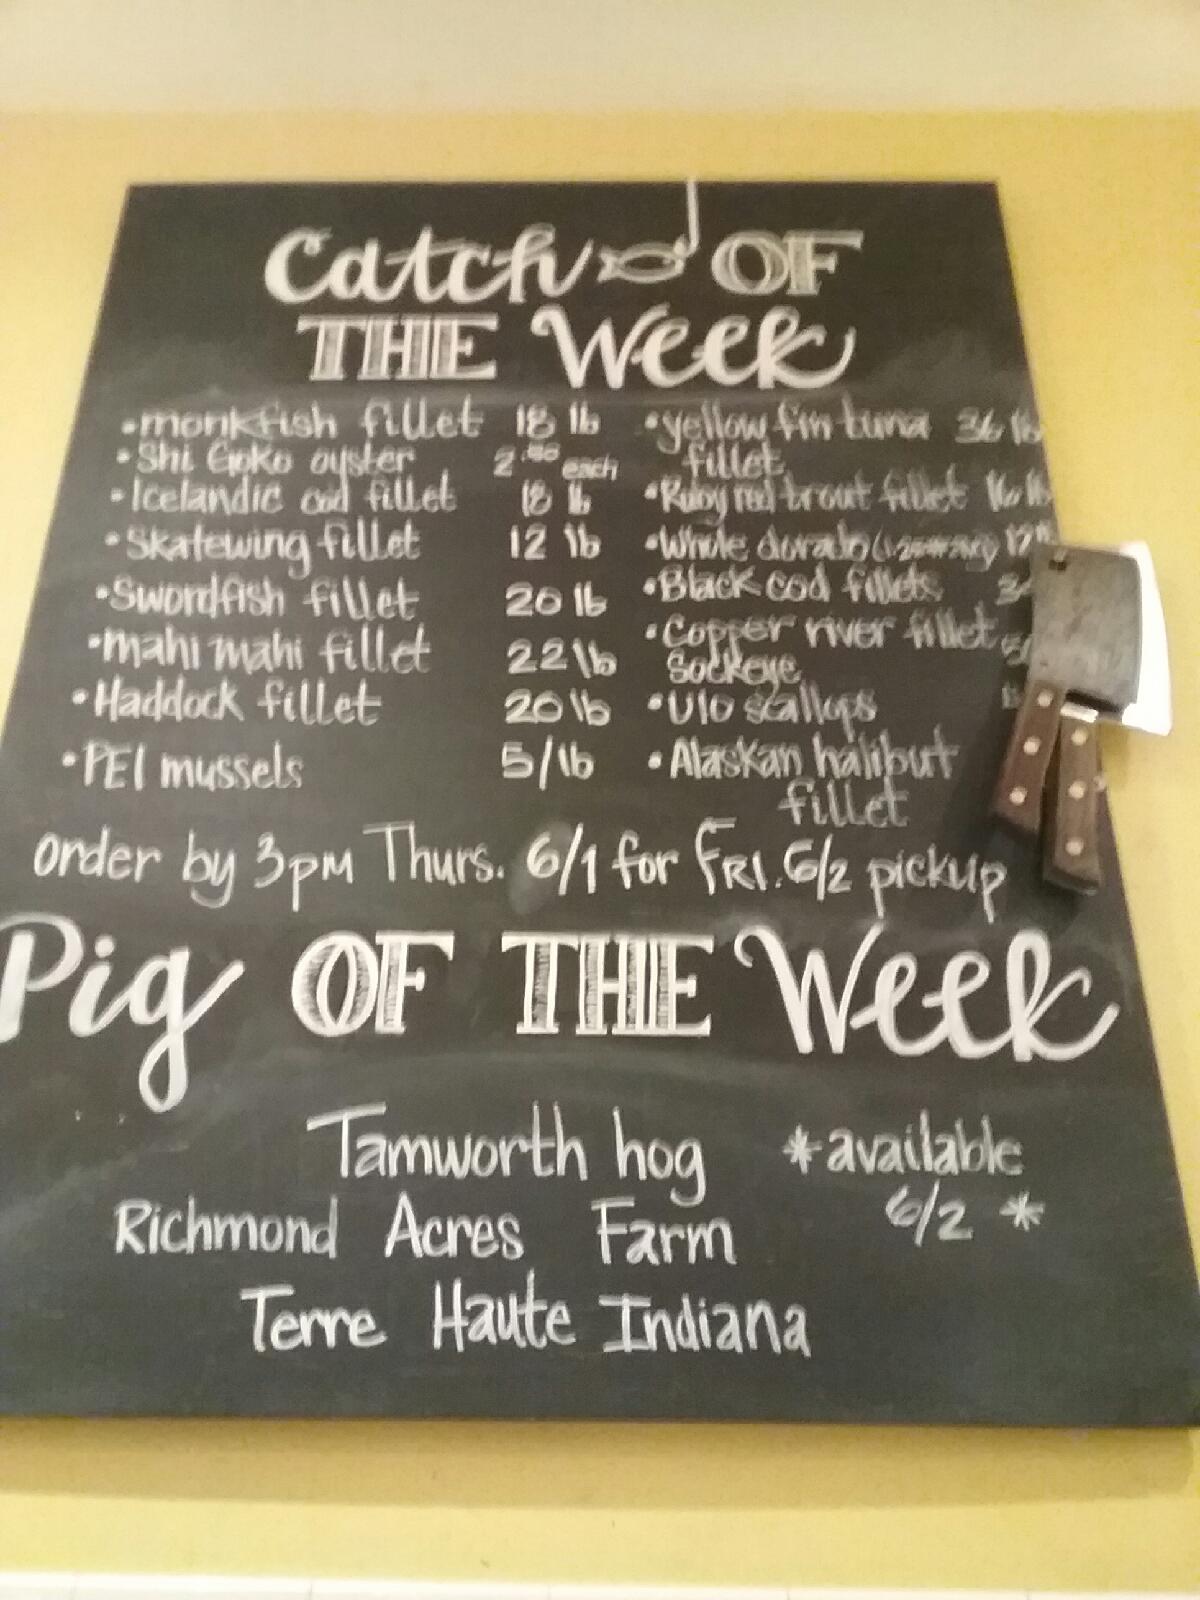 Catch OF
THE Week
•monkfish fillet 18 lb
•Shi Goko oyster each
•Icelandic cod fillet 18 lb
•Skatewing fillet 12 lb
•Swordfish fillet 20 lb
•mahi mahi fillet 22 lb
•Haddock fillet 20 lb
•PEI mussels 5/lb
•yellow fin tuna 36 lb
fillet
•Ruby red trout fillet 16 lb
•Whole dorado
•Black cod fillets
•Copper river fillet
Sockeye
•U10 scallops
•Alaskan halibut
fillet
order by 3PM Thurs. 6/1 for FRI. 6/2 pickup
Pig OF THE Week
Tamworth hog
Richmond Acres Farm
Terre Haute Indiana
*available
6/2 *